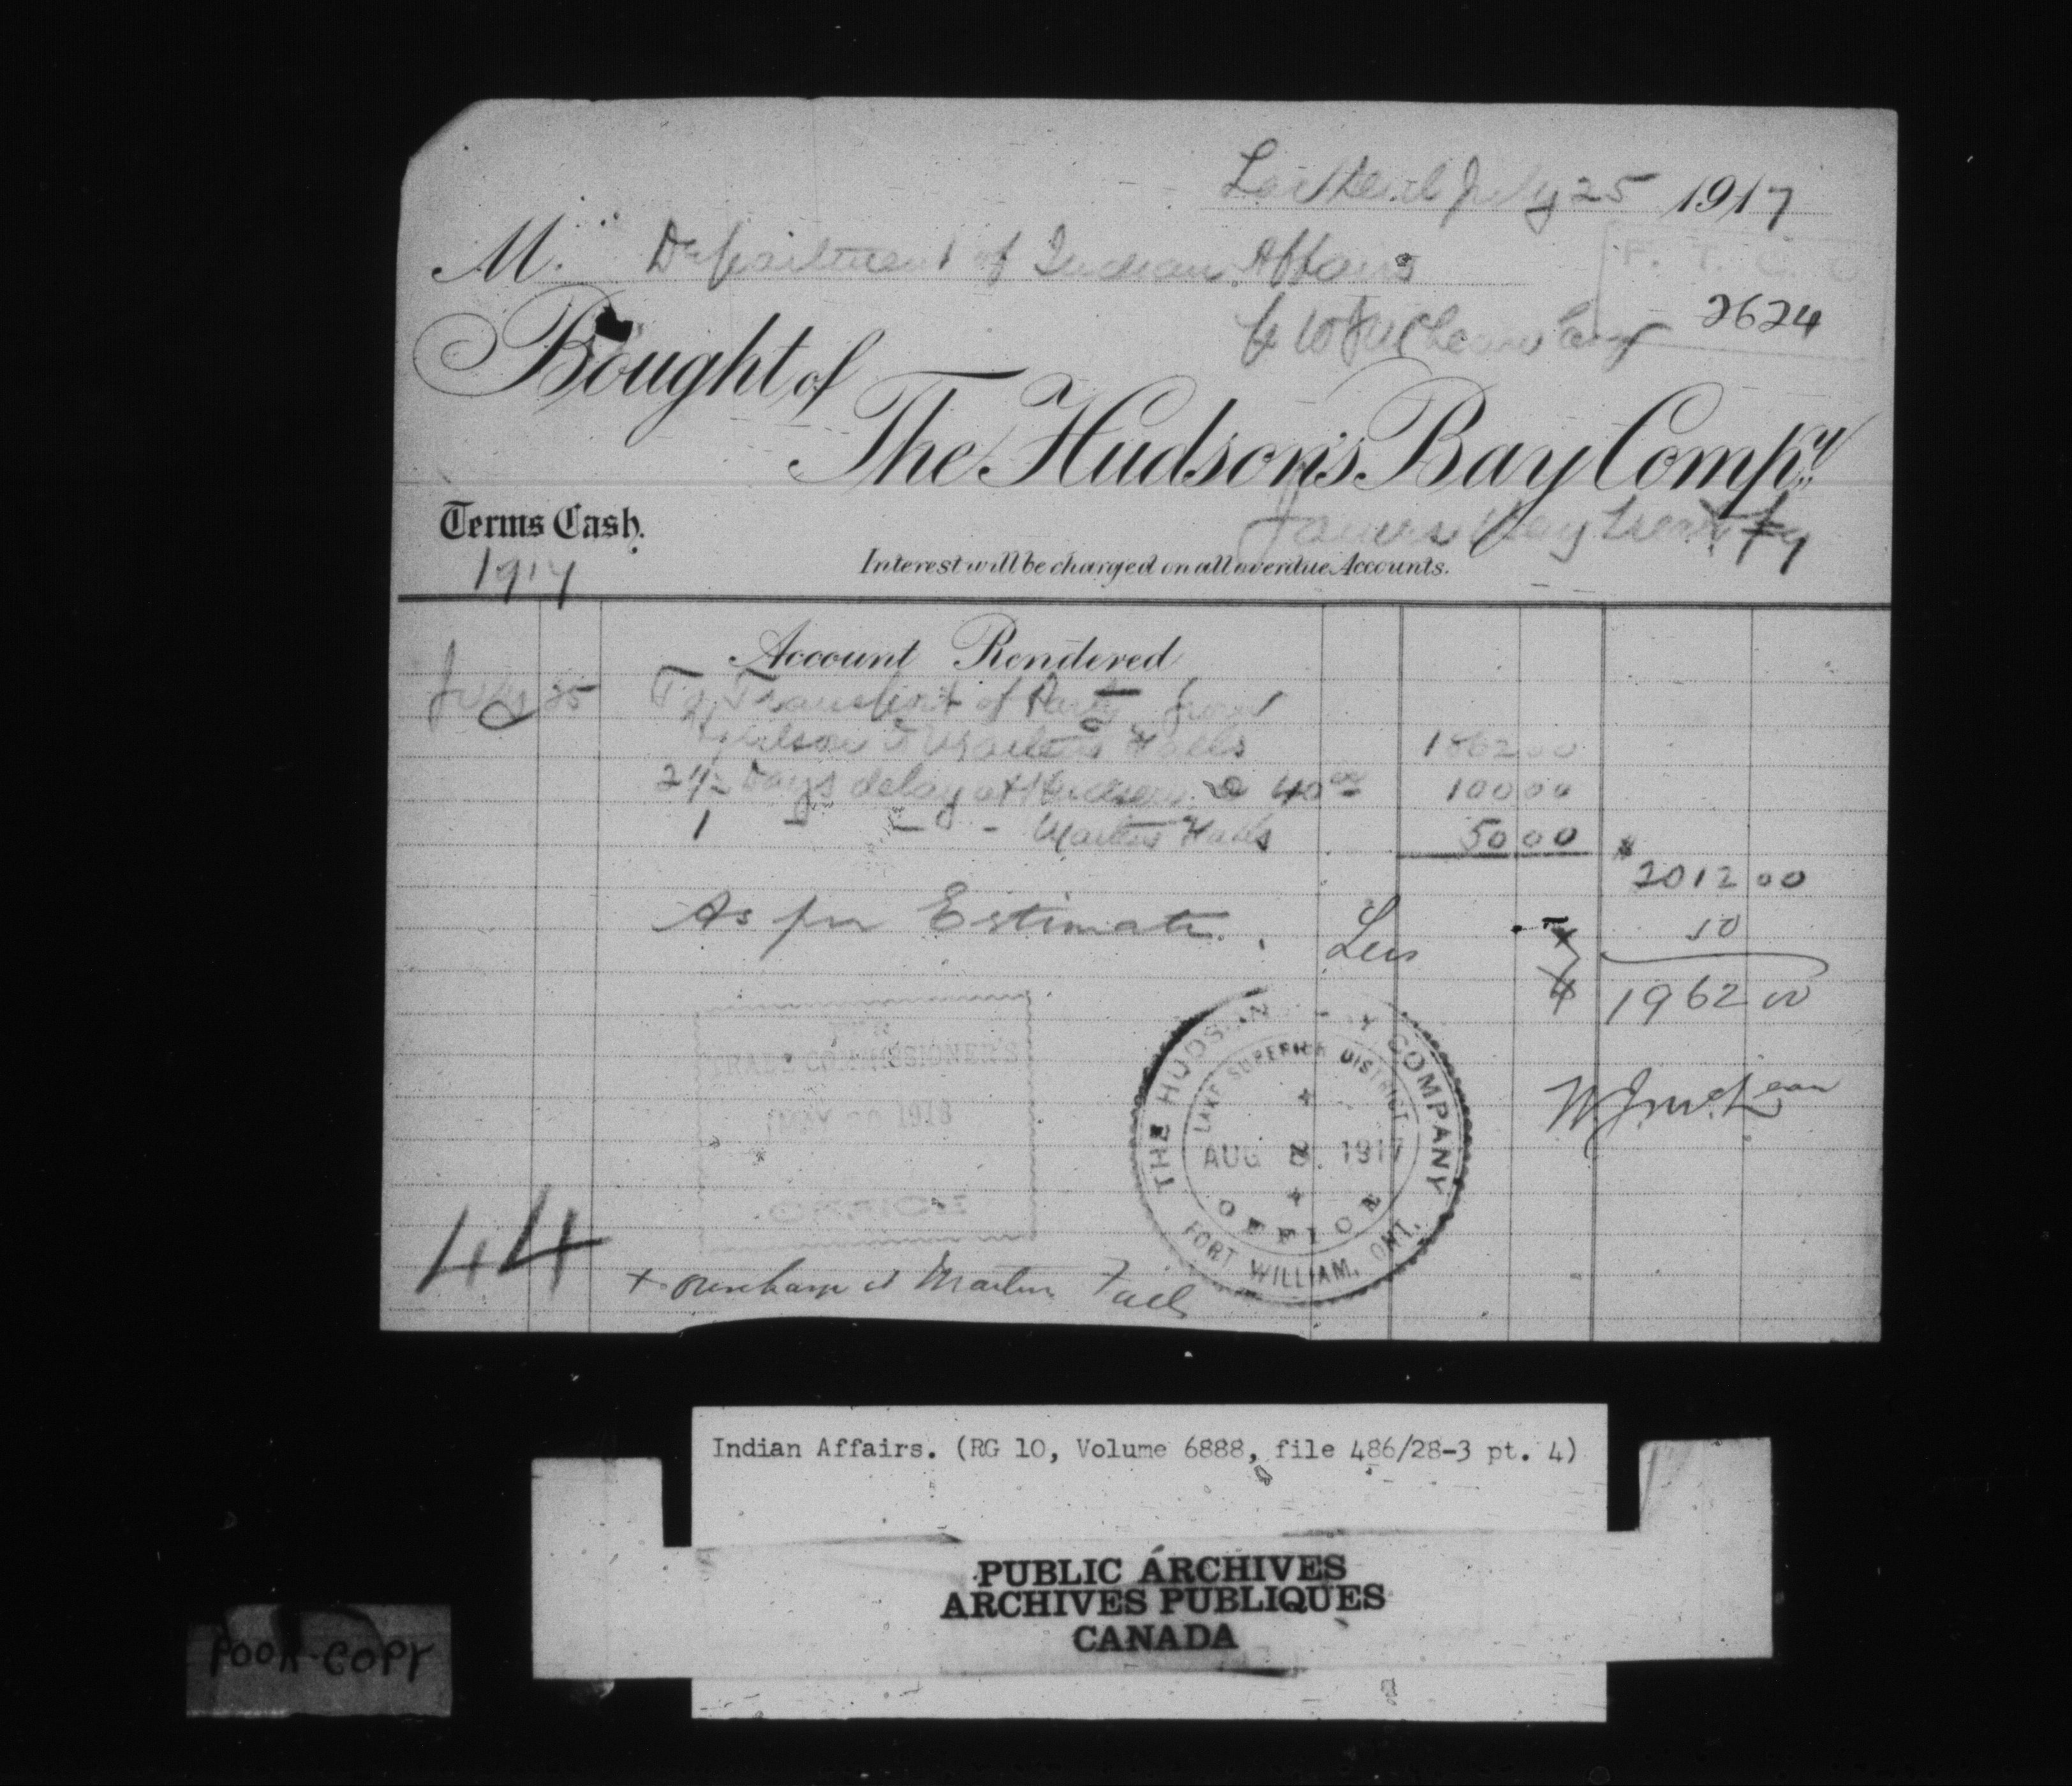 July 25 1917
M. Department of Indian Affairs
F. T. C. O
2624
Bought of
The Hudson's Bay Compy.
Terms Cash.
1917
Interest will be charged on all overdue Accounts.
Account Rendered
July 25 To Transport of Party from
Hudson to Martins Falls 1862 00
2 1/2 Days delay at Hudson @ 40 00 100 00
1 - - - Martins Falls 50 00
$ 2012 00
As per Estimate. Less x 50
$ 1962 00
TRADE COMMISSIONER'S
MAY 1918
OFFICE
THE HUDSON'S BAY COMPANY
LAKE SUPERIOR DISTRICT
AUG 1917
OFFICE
FORT WILLIAM, ONT.
44
x overcharge at Martins Falls
Indian Affairs. (RG 10, Volume 6888, file 486/28-3 pt. 4)
PUBLIC ARCHIVES
ARCHIVES PUBLIQUES
CANADA
POOR COPY